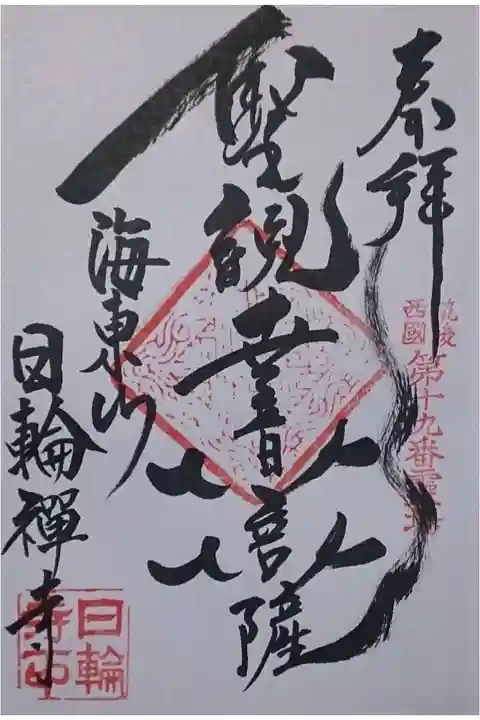 奉拝
筑後
西國
第十九番霊場
聖観世音菩薩
海東山
日輪禅寺
日輪
寺印